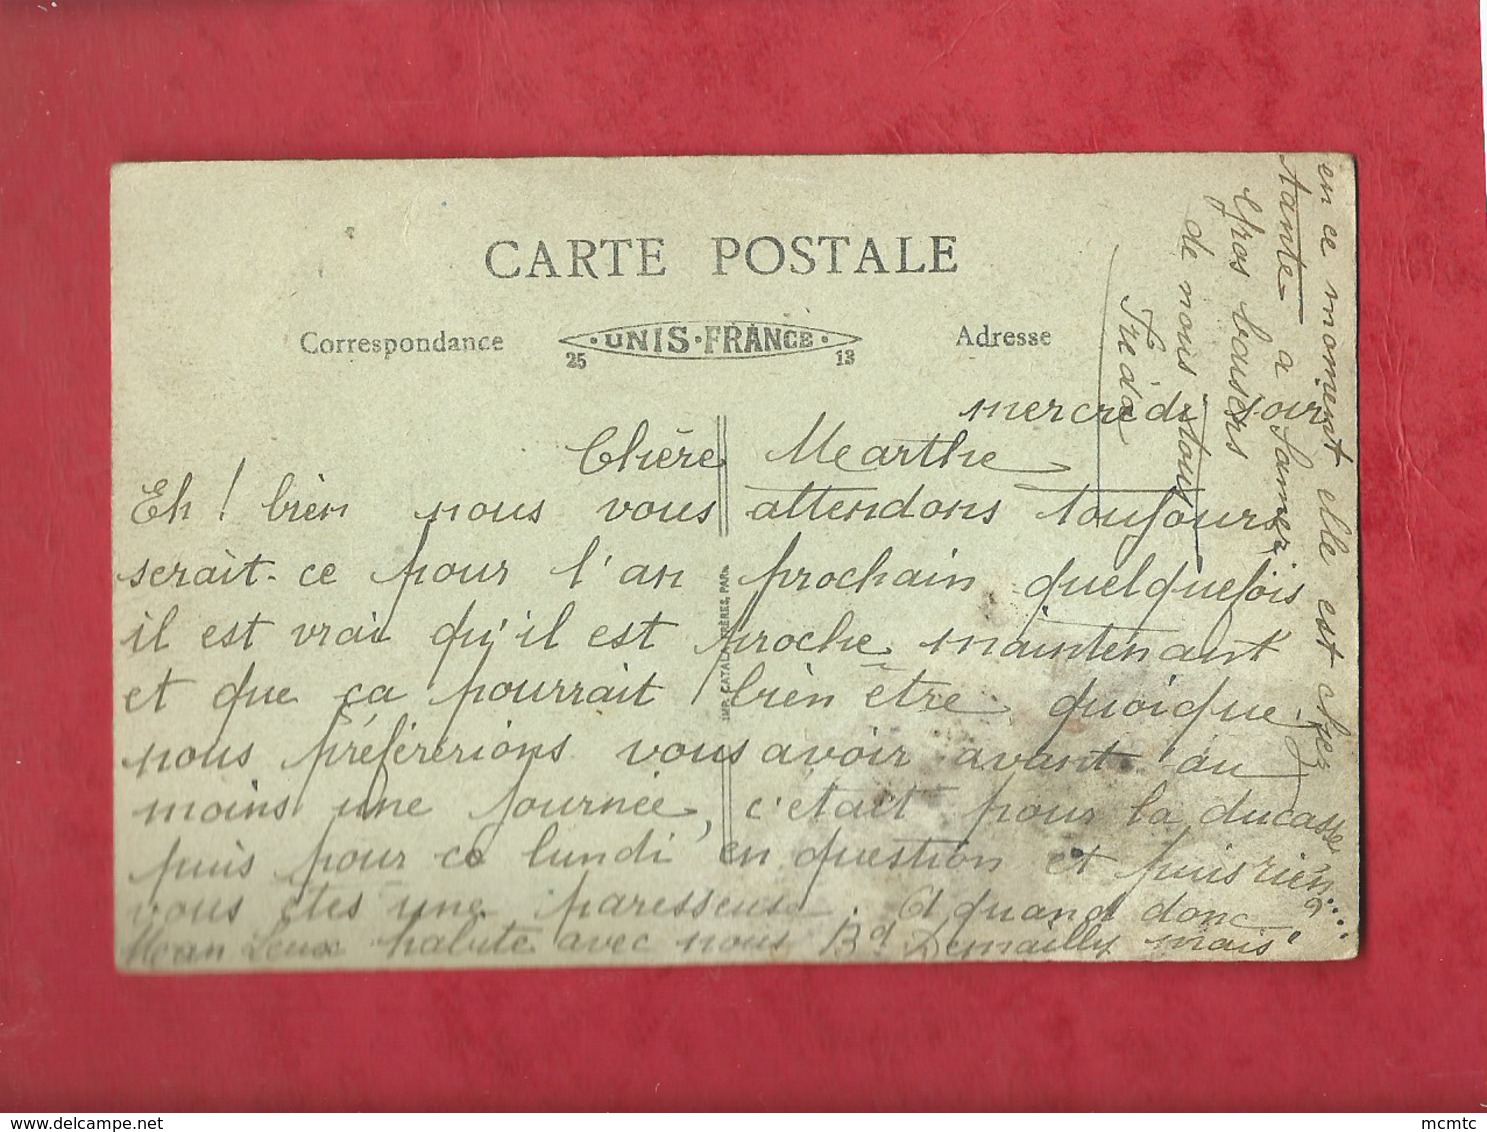 CARTE POSTALE
Correspondance
UNIS-FRANCE
25 13
Adresse
mercredi soir
Chère Marthe
Eh! bien nous vous attendons toujours
serait-ce pour l'an prochain quelquefois
il est vrai qu'il est proche maintenant
et que ça pourrait bien être quoique
nous préférerions vous avoir avant au
moins une journée, c'était pour la ducasse
puis pour ce lundi en question et puis rien....
vous êtes une paresseuse. A quand donc?
habite avec nous Bd Demailly mais
en ce moment elle est chez
tante à Samer
Gros baisers
de nous tous
Fréda
IMP. CATALA FRÈRES, PARIS
delcampe.net
mcmtc